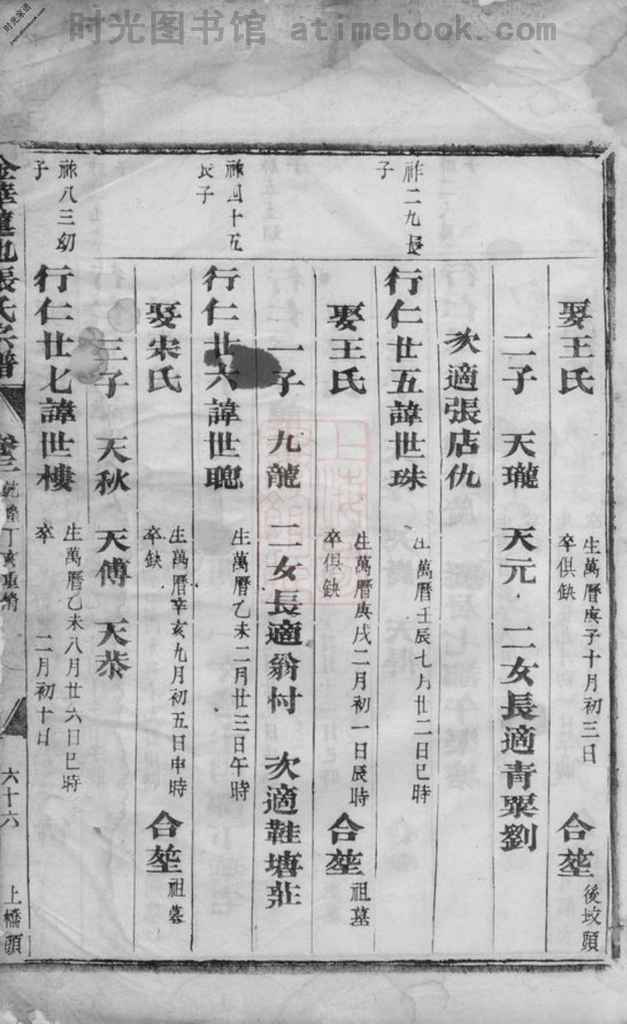 时光图书馆 atimebook.com
娶王氏 生萬曆庚子十月初三日 卒俱缺 合塋 後坟頭
二子 天瓏 天元 二女長適青粟劉
次適張店仇
祚二九長子
行仁廿五諱世珠 生萬曆壬辰七月廿二日巳時
娶王氏 生萬曆庚戌二月初一日辰時 卒俱缺 合塋 祖墓
一子 九龍 二女長適翁村 次適鞋塘莊
祿四十五長子
行仁廿六諱世聰 生萬曆乙未二月廿三日午時
娶宋氏 生萬曆辛亥九月初五日申時 卒缺 合塋 祖墓
三子 天秋 天傅 天恭
祿八三幼子
行仁廿七諱世樓 生萬曆乙未八月廿六日巳時 卒 二月初十日
張氏宗譜 卷三 丁亥重脩 六十六 上橋頭